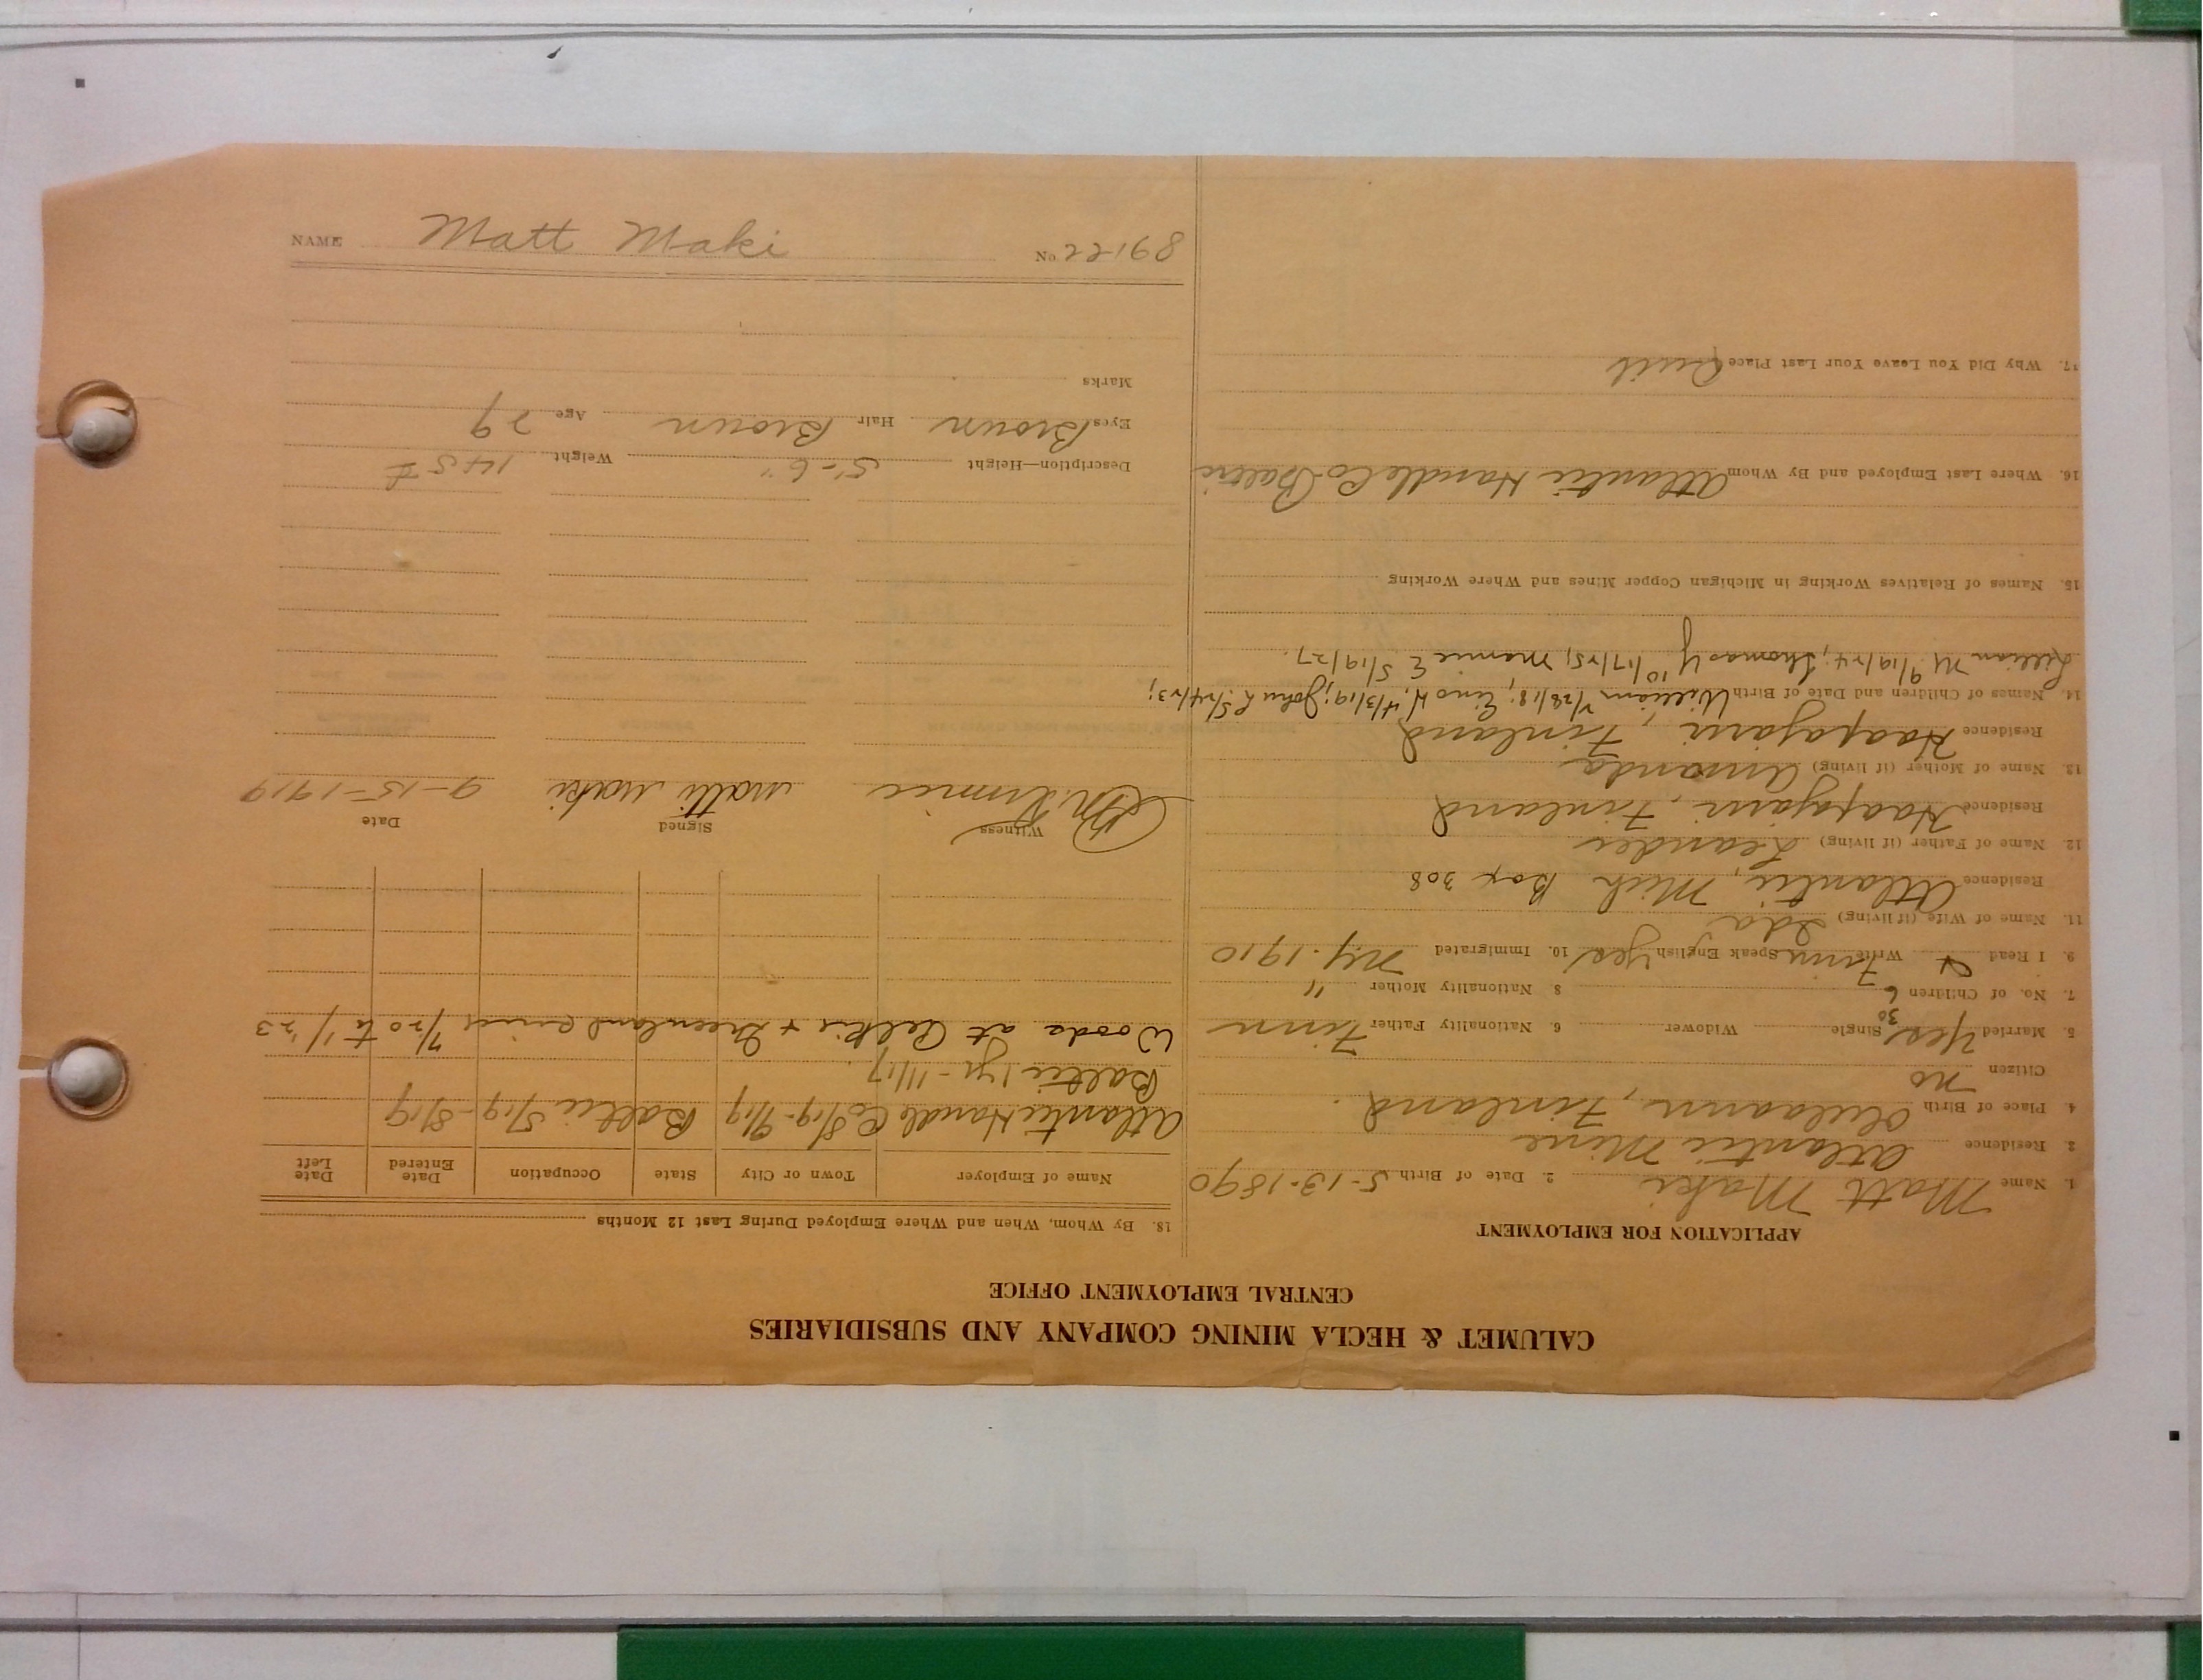 CALUMET & HECLA MINING COMPANY AND SUBSIDIARIES
CENTRAL EMPLOYMENT OFFICE
APPLICATION FOR EMPLOYMENT
1. Name Matt Maki 2. Date of Birth 5-13-1890
3. Residence Atlantic Mine
4. Place of Birth Finland.
Citizen no
5. Married Yes Single 30 Widower 6. Nationality Father Finn
7. No. of Children 6 8. Nationality Mother "
9. I Read & Write Finn Speak English Yes 10. Immigrated N.Y. 1910
11. Name of Wife (if living) Ida
Residence Atlantic, Mich Box 308
12. Name of Father (if living) Leander
Residence Haapajarvi, Finland
13. Name of Mother (if living) Amanda
Residence Haapajarvi, Finland
14. Names of Children and Date of Birth William 1/28/18; Eino W. 4/3/19; John L. 5/24/23;
Lillian M 9/19/24; Thomas Y 10/17/25; Mamie E 5/19/27.
15. Names of Relatives Working in Michigan Copper Mines and Where Working
16. Where Last Employed and By Whom Atlantic Handle Co Baltic
17. Why Did You Leave Your Last Place Quit
18. By Whom, When and Where Employed During Last 12 Months
Name of Employer Town or City State Occupation Date Entered Date Left
Atlantic Handle Co 8/19-9/19 Baltic 5/19-8/19
Baltic 1 yr - 11/17
Woods at + Greenland since 7/20 to 1/1/23
Witness Signed Date
Matti Maki 9-15-1919
Description—Height 5'-6" Weight 145 #
Eyes Brown Hair Brown Age 29
Marks
NAME Matt Maki No 22168